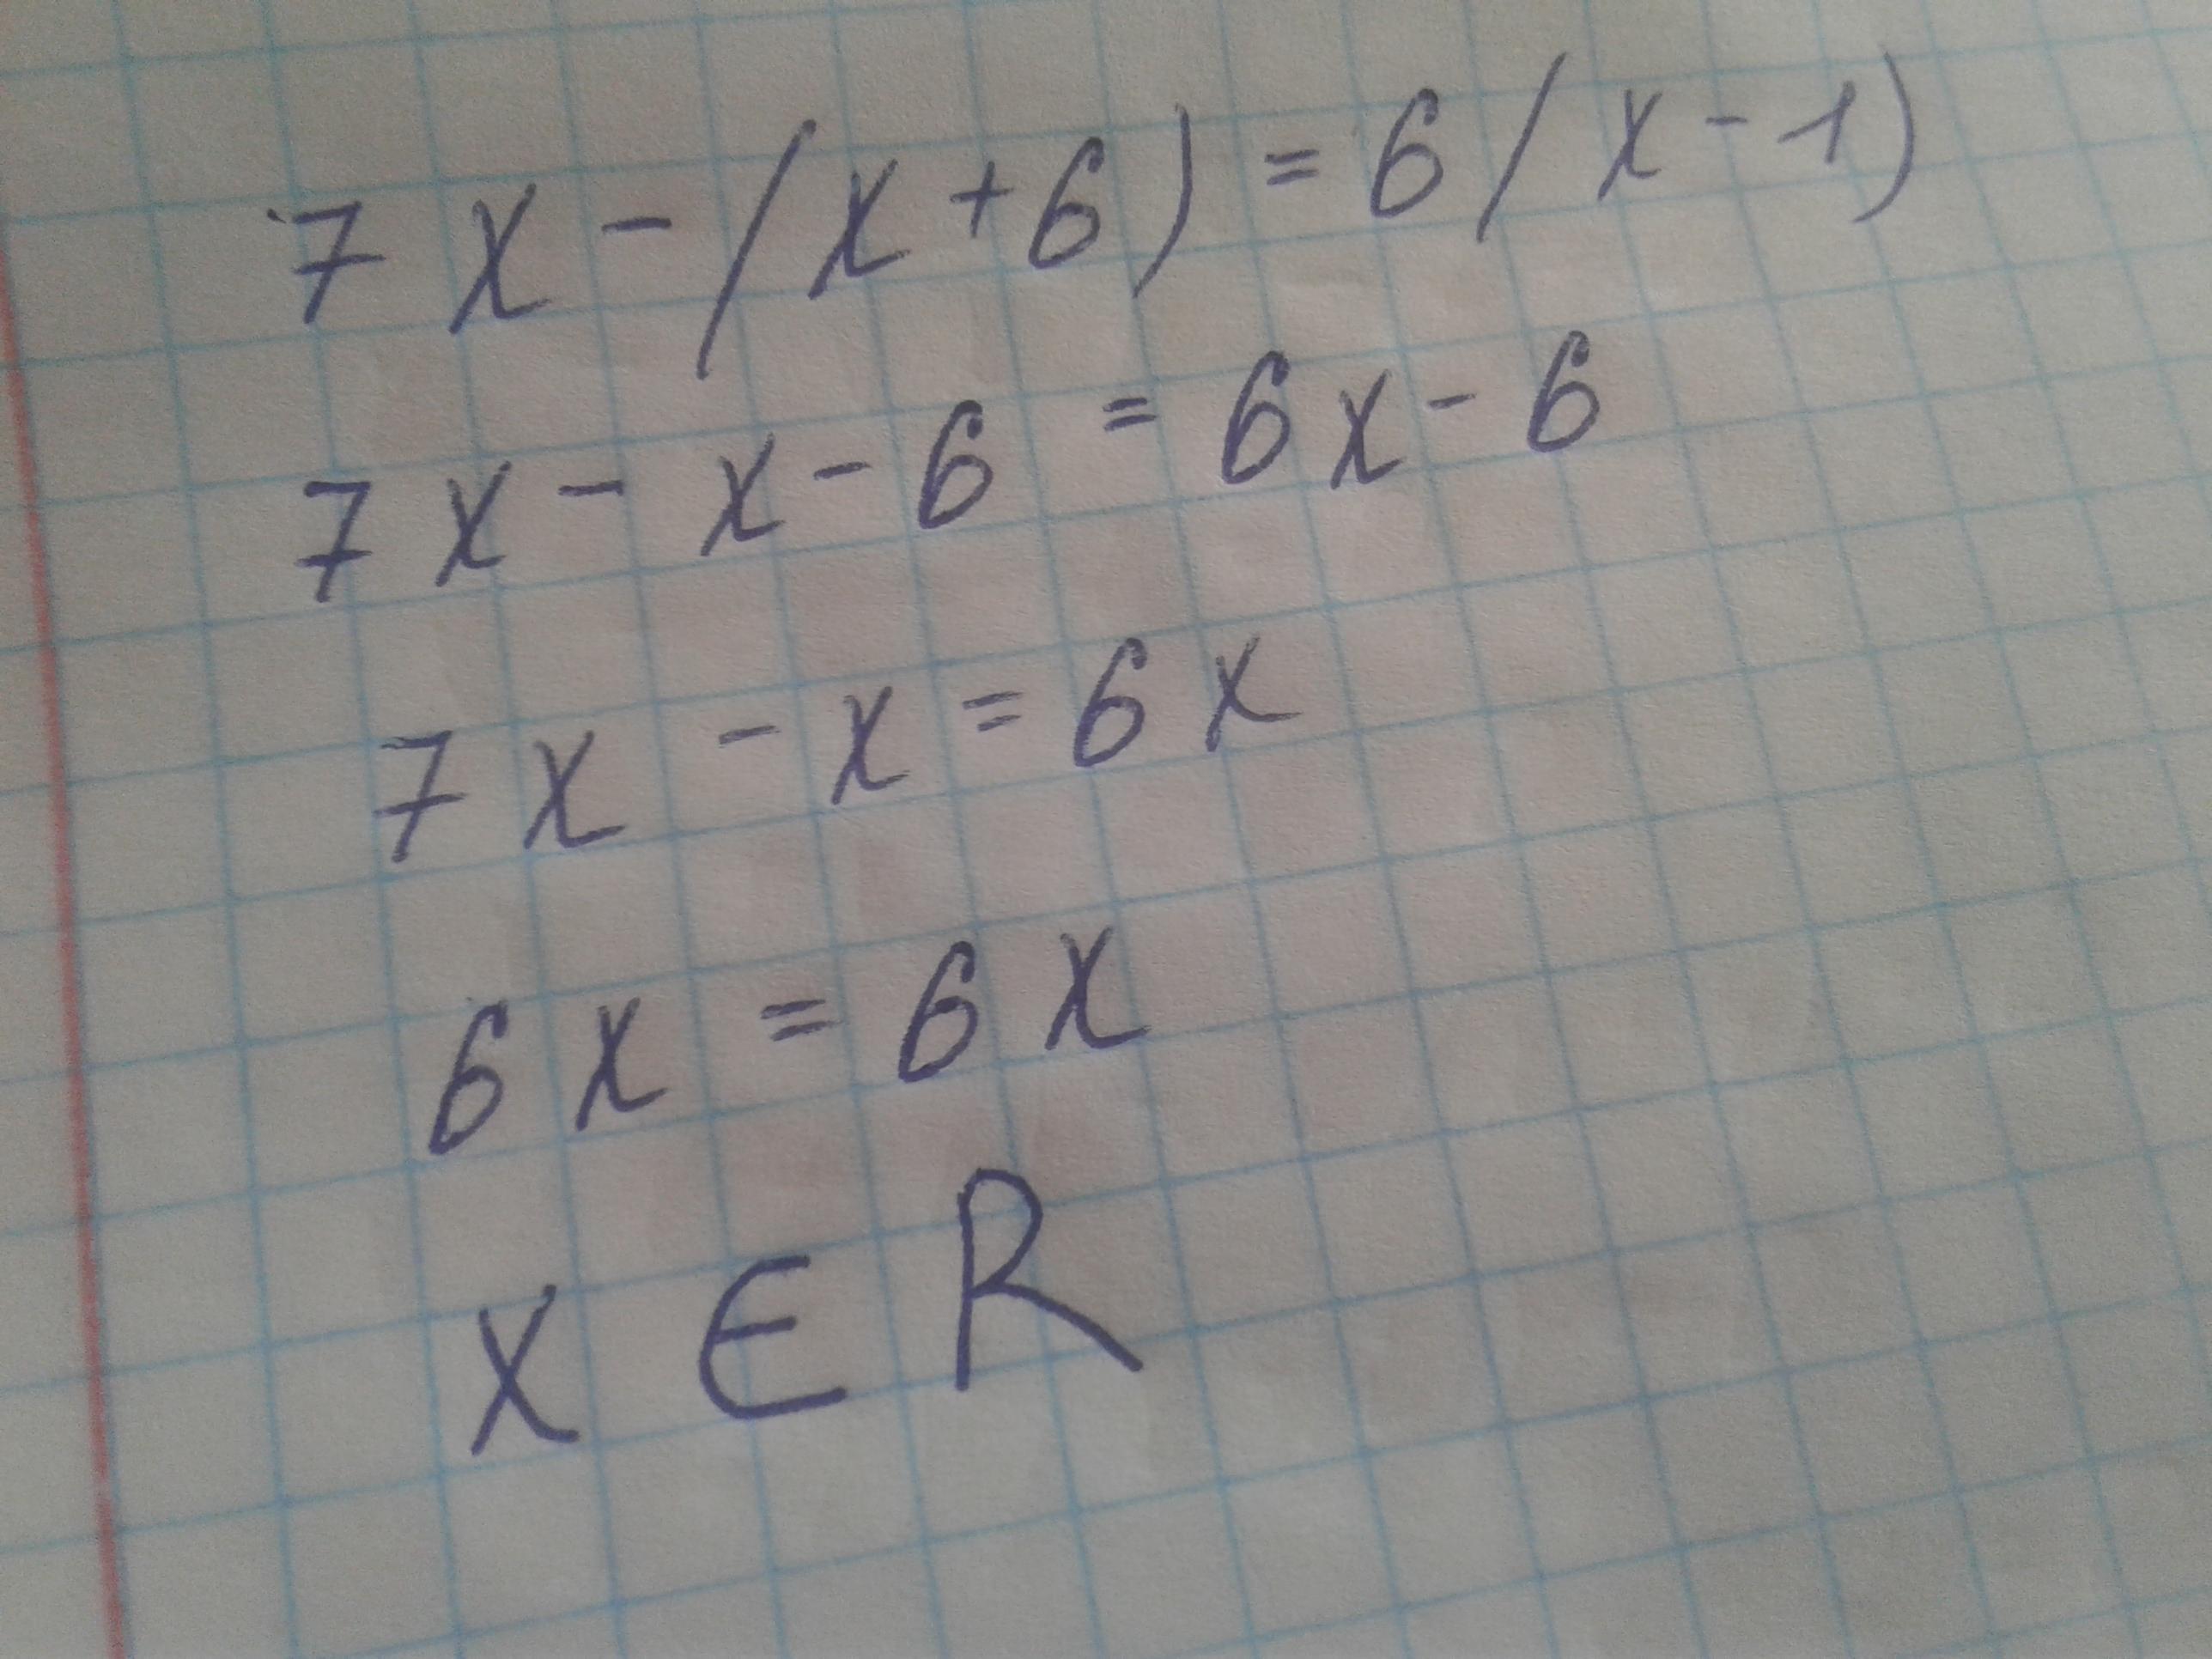 7x - (x + 6) = 6(x - 1)
7x - x - 6 = 6x - 6
7x - x = 6x
6x = 6x
x ∈ R